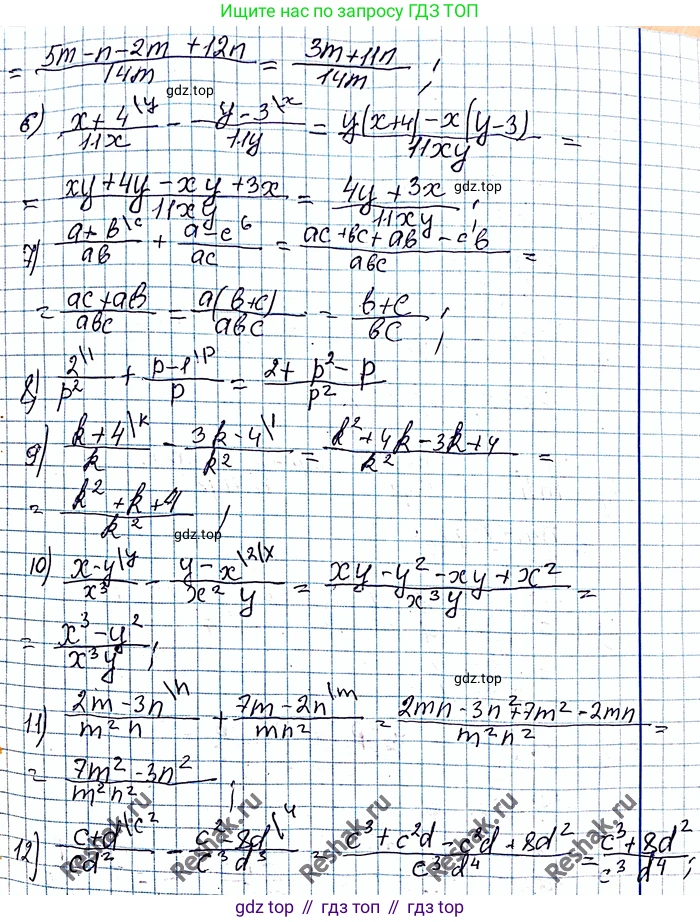 Ищите нас по запросу ГДЗ ТОП
= (5m - n - 2m + 12n)/14m = (3m + 11n)/14m ;
gdz.top
6) (x + 4 \y)/11x - (y - 3 \x)/11y = (y(x+4) - x(y-3))/11xy =
= (xy + 4y - xy + 3x)/11xy = (4y + 3x)/11xy ;
gdz.top
7) (a + b \c)/ab + (a - c b)/ac = (ac + bc + ab - cb)/abc =
= (ac + ab)/abc = a(b+c)/abc = (b+c)/bc ;
8) 2 \1/p² + (p - 1 \p)/p = (2 + p² - p)/p²
9) (k + 4 \k)/k - (3k - 4 \1)/k² = (k² + 4k - 3k + 4)/k² =
= (k² + k + 4)/k² ;
gdz.top
10) (x - y \y)/x³ - (y - x \x)/x² y = (xy - y² - xy + x²)/x³y =
= (x³ - y²)/x³y ;
gdz.top
11) (2m - 3n \n)/m² n + (7m - 2n \m)/mn² = (2mn - 3n² + 7m² - 2mn)/m² n² =
= (7m² - 3n²)/m² n² ;
12) (c + d \c²)/cd² - (c² - 8d \4)/c³ d³ = (c³ + c²d - c²d + 8d²)/c³ d⁴ = (c³ + 8d²)/c³ d⁴ ;
Reshak.ru
Reshak.ru
Reshak.ru
Reshak.ru
gdz.top // гдз.топ // gdz.top